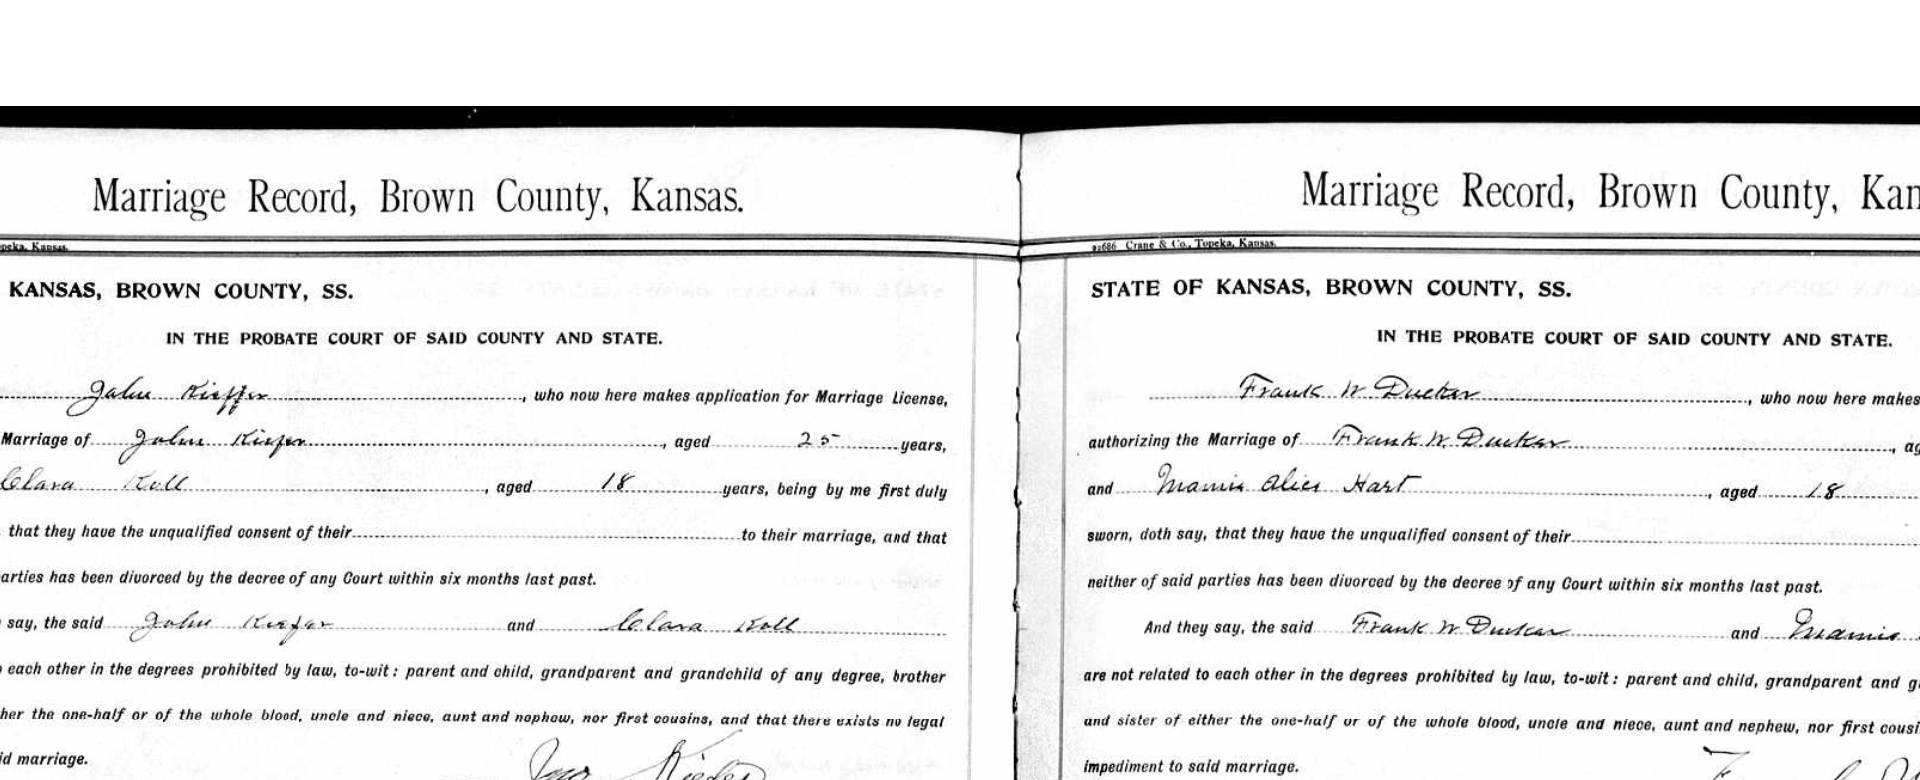 Marriage Record, Brown County, Kansas.
peka, Kansas.
KANSAS, BROWN COUNTY, SS.
IN THE PROBATE COURT OF SAID COUNTY AND STATE.
John Kieffer, who now here makes application for Marriage License,
Marriage of John Kiefer, aged 25 years,
Clara Koll, aged 18 years, being by me first duly
that they have the unqualified consent of their to their marriage, and that
arties has been divorced by the decree of any Court within six months last past.
say, the said John Kiefer and Clara Koll
o each other in the degrees prohibited by law, to-wit: parent and child, grandparent and grandchild of any degree, brother
her the one-half or of the whole blood, uncle and niece, aunt and nephew, nor first cousins, and that there exists no legal
id marriage.
Jno
Marriage Record, Brown County, Kan
22686 Crane & Co., Topeka, Kansas.
STATE OF KANSAS, BROWN COUNTY, SS.
IN THE PROBATE COURT OF SAID COUNTY AND STATE.
Frank W Ducker, who now here makes
authorizing the Marriage of Frank W. Ducker, ag
and Mamie Alice Hart, aged 18
sworn, doth say, that they have the unqualified consent of their
neither of said parties has been divorced by the decree of any Court within six months last past.
And they say, the said Frank W Ducker and Mamie
are not related to each other in the degrees prohibited by law, to-wit: parent and child, grandparent and g
and sister of either the one-half or of the whole blood, uncle and niece, aunt and nephew, nor first cousi
impediment to said marriage.